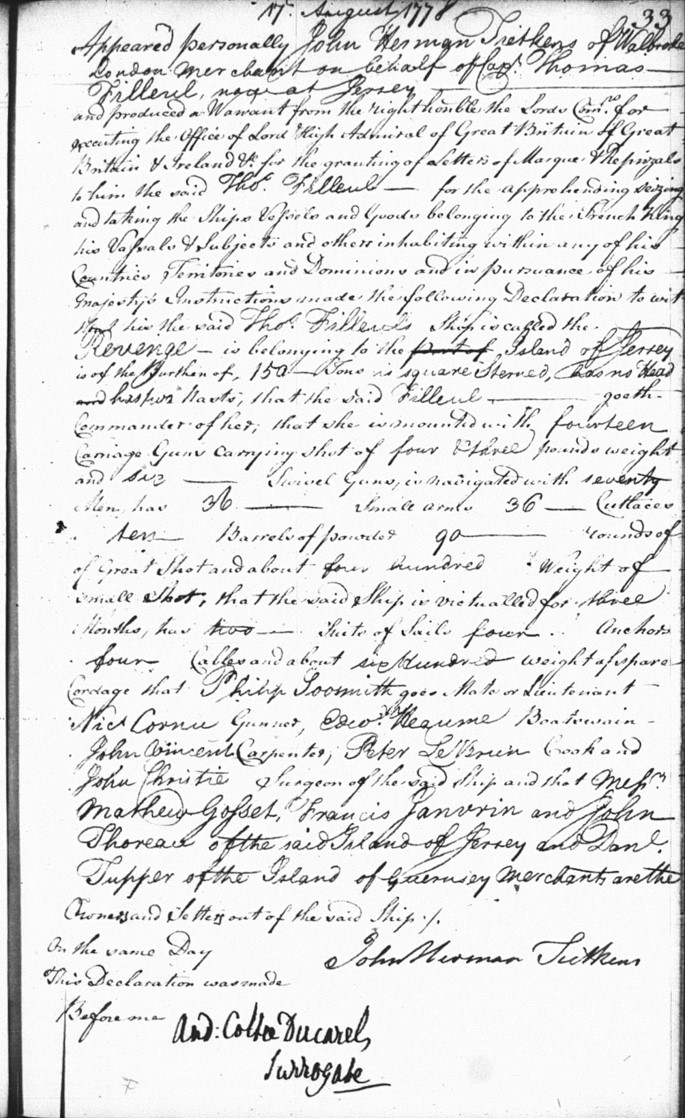 17th August 1778
33
Appeared personally John Herman Tietkens of Walbroke
London Merchant on behalf of Capt. Thomas
Filleul, now at Jersey
and produced a Warrant from the right honble the Lords Comrs. for
executing the Office of Lord High Admiral of Great Britain of Great
Britain & Ireland &c for the granting of Letters of Marque & Reprizals
to him the said Tho. Filleul — for the apprehending seizing
and taking the Ships Vessels and Goods belonging to the French King
his Vassals & Subjects and others inhabiting within any of his
Countries Territories and Dominions and in pursuance of his
Majesty's Instructions made the following Declaration to wit
that his the said Tho. Filleul's Ship is called the
Revenge — is belonging to the port of Island of Jersey
is of the Burthen of, 150 — Tons is square Sterned, has no Head
and has two Masts, that the said Filleul — goeth
Commander of her; that she is mounted with fourteen
Carriage Guns carrying shot of four & three pounds weight
and six — Swivel Guns, is navigated with seventy
Men, has 36 — Small arms 36 — Cutlaces
ten Barrels of powder 90 — rounds of
of Great Shot and about four hundred Weight of
small Shot, that the said Ship is victualled for three
Months, has two — Suits of Sails four Anchors
four Cables and about six Hundred weight of spare
Cordage that Philip Soosmith goes Mate or Lieutenant
Nics Cornu Gunner, Edwd. Heaume Boatswain
John Vincent Carpenter, Peter LeBrun Cook and
John Christie Surgeon of the said Ship and that Messrs
Mathew Gosset, Francis Janvrin and John
Thoreau of the said Island of Jersey and Danl.
Tupper of the Island of Guernsey Merchants are the
Owners and Setters out of the said Ship /.
On the same Day
John Herman Tietkens
This Declaration was made
Before me
And: Coltee Ducarel,
Surrogate